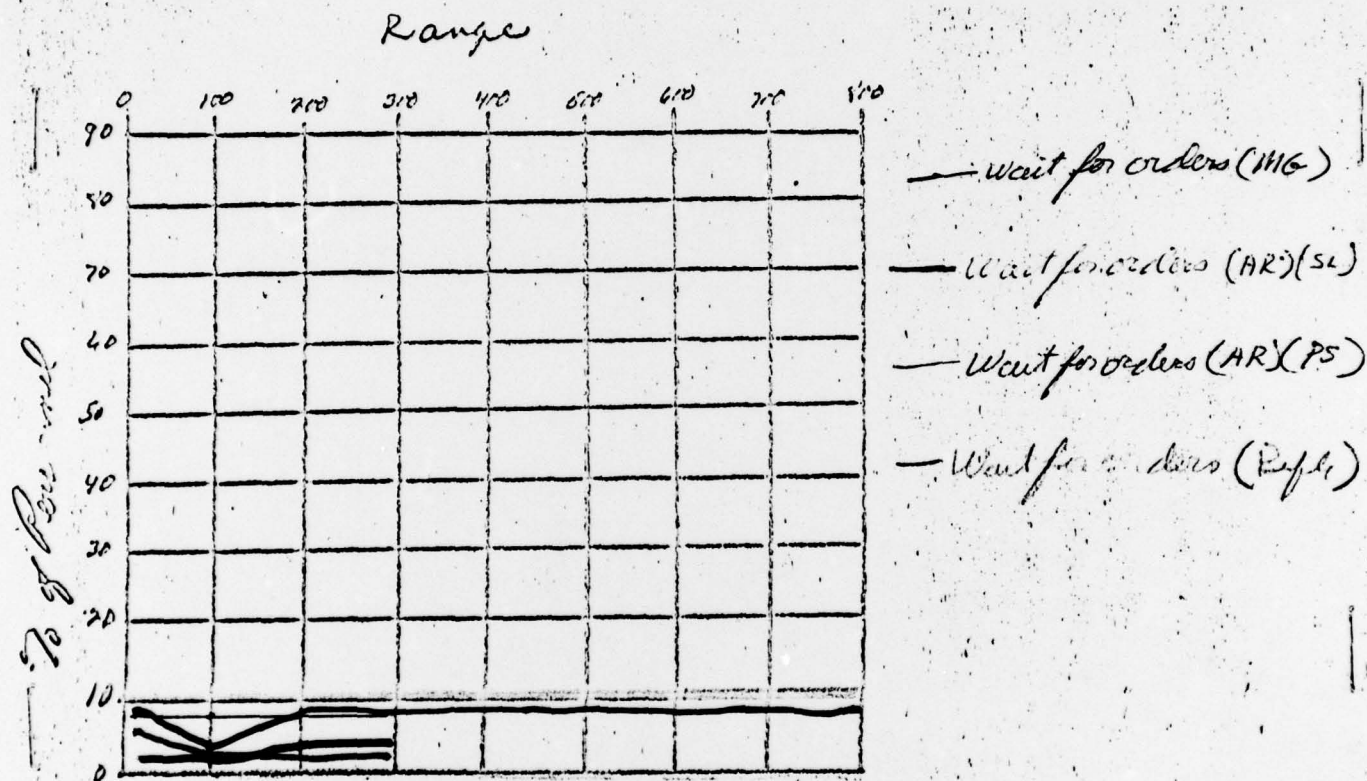 Range
0 100 200 300 400 500 600 700 800
90
80
70
40
50
40
30
20
10
0
% of
Wait for orders (MG)
Wait for orders (AR)(SL)
Wait for orders (AR)(PS)
Wait for orders